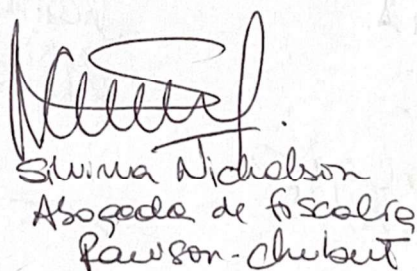 Silvina Nicholson
Abogada de fiscalía
Rawson - Chubut